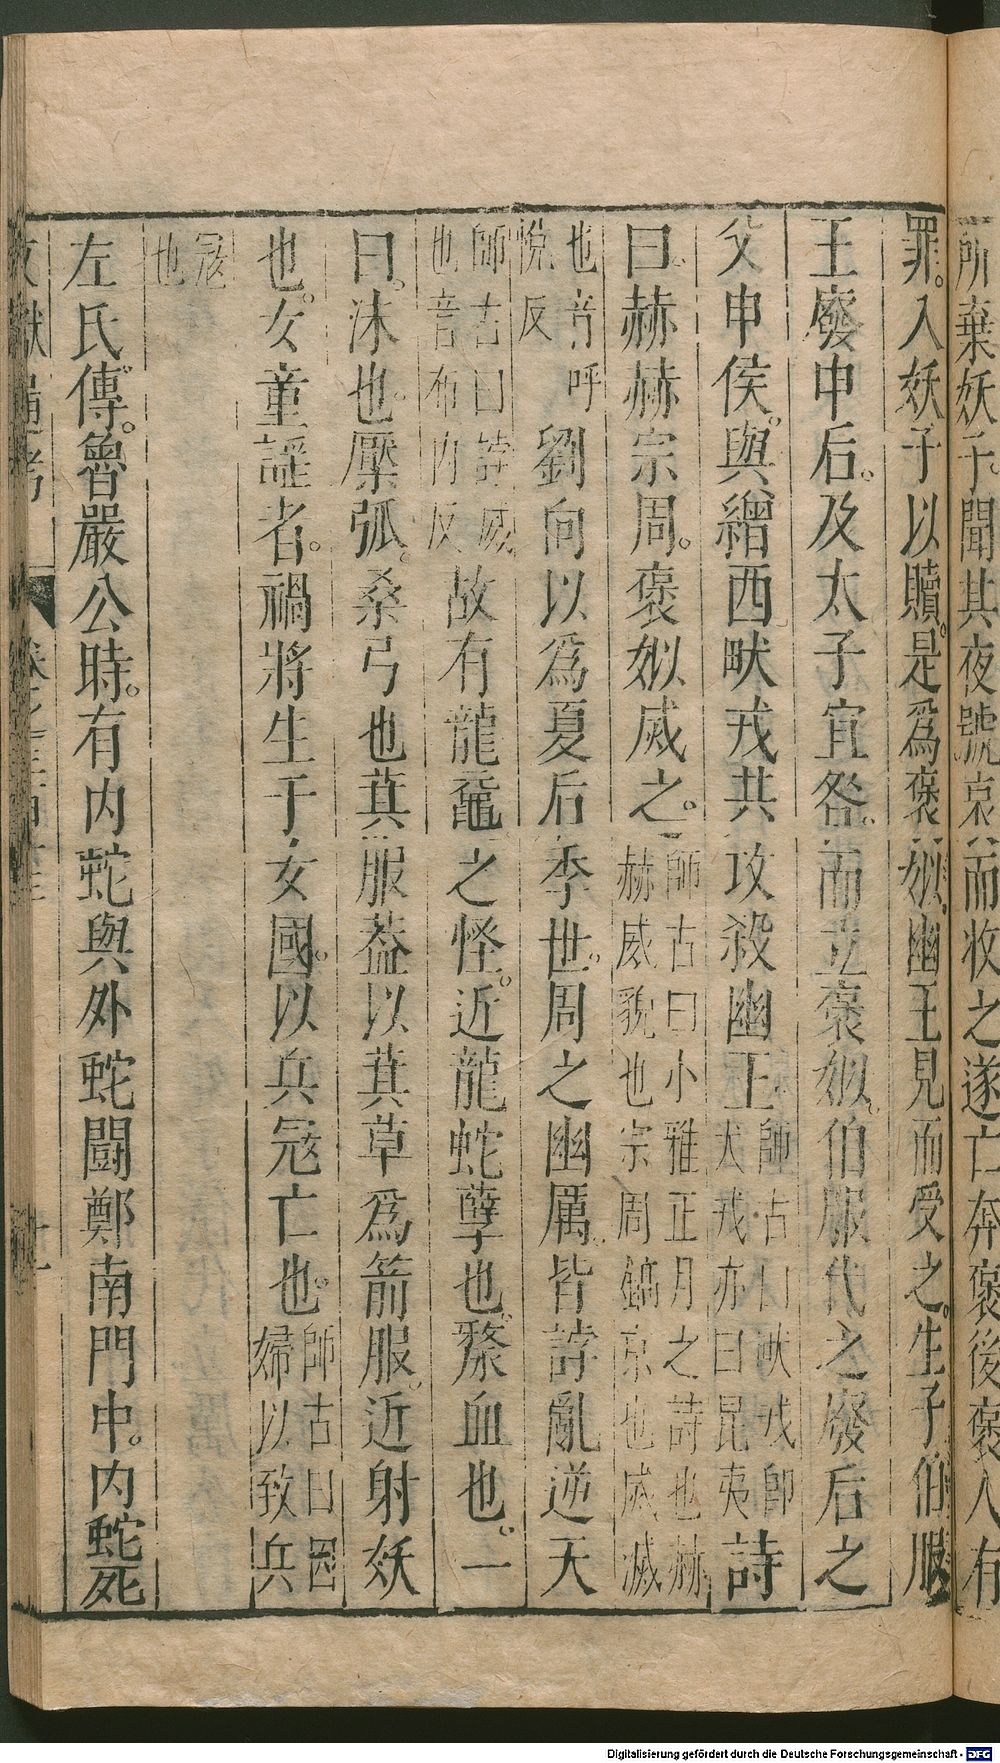 所棄妖子聞其夜號哀而收之遂亡奔褒後褒人有
罪入妖子以贖是爲褒姒幽王見而受之生子伯服
王廢申后及太子宜咎而立褒姒伯服代之廢后之
父申侯與繒西畎戎共攻殺幽王師古曰畎戎卽犬戎亦曰昆夷詩
曰赫赫宗周褒姒烕之師古曰小雅正月之詩也赫赫盛貌也宗周鎬京也烕滅
也音呼悅反劉向以爲夏后季世周之幽厲皆誖亂逆天
師古曰誖惑也音布內反故有龍黿之怪近龍蛇孽也漦血也一
曰沬也檿弧桑弓也萁服蓋以萁草爲箭服近射妖
也女童謡者禍將生于女國以兵冦亡也師古曰因婦以致兵
冦也
左氏傳魯嚴公時有內蛇與外蛇鬪鄭南門中內蛇死
文獻通考
Digitalisierung gefördert durch die Deutsche Forschungsgemeinschaft - DFG